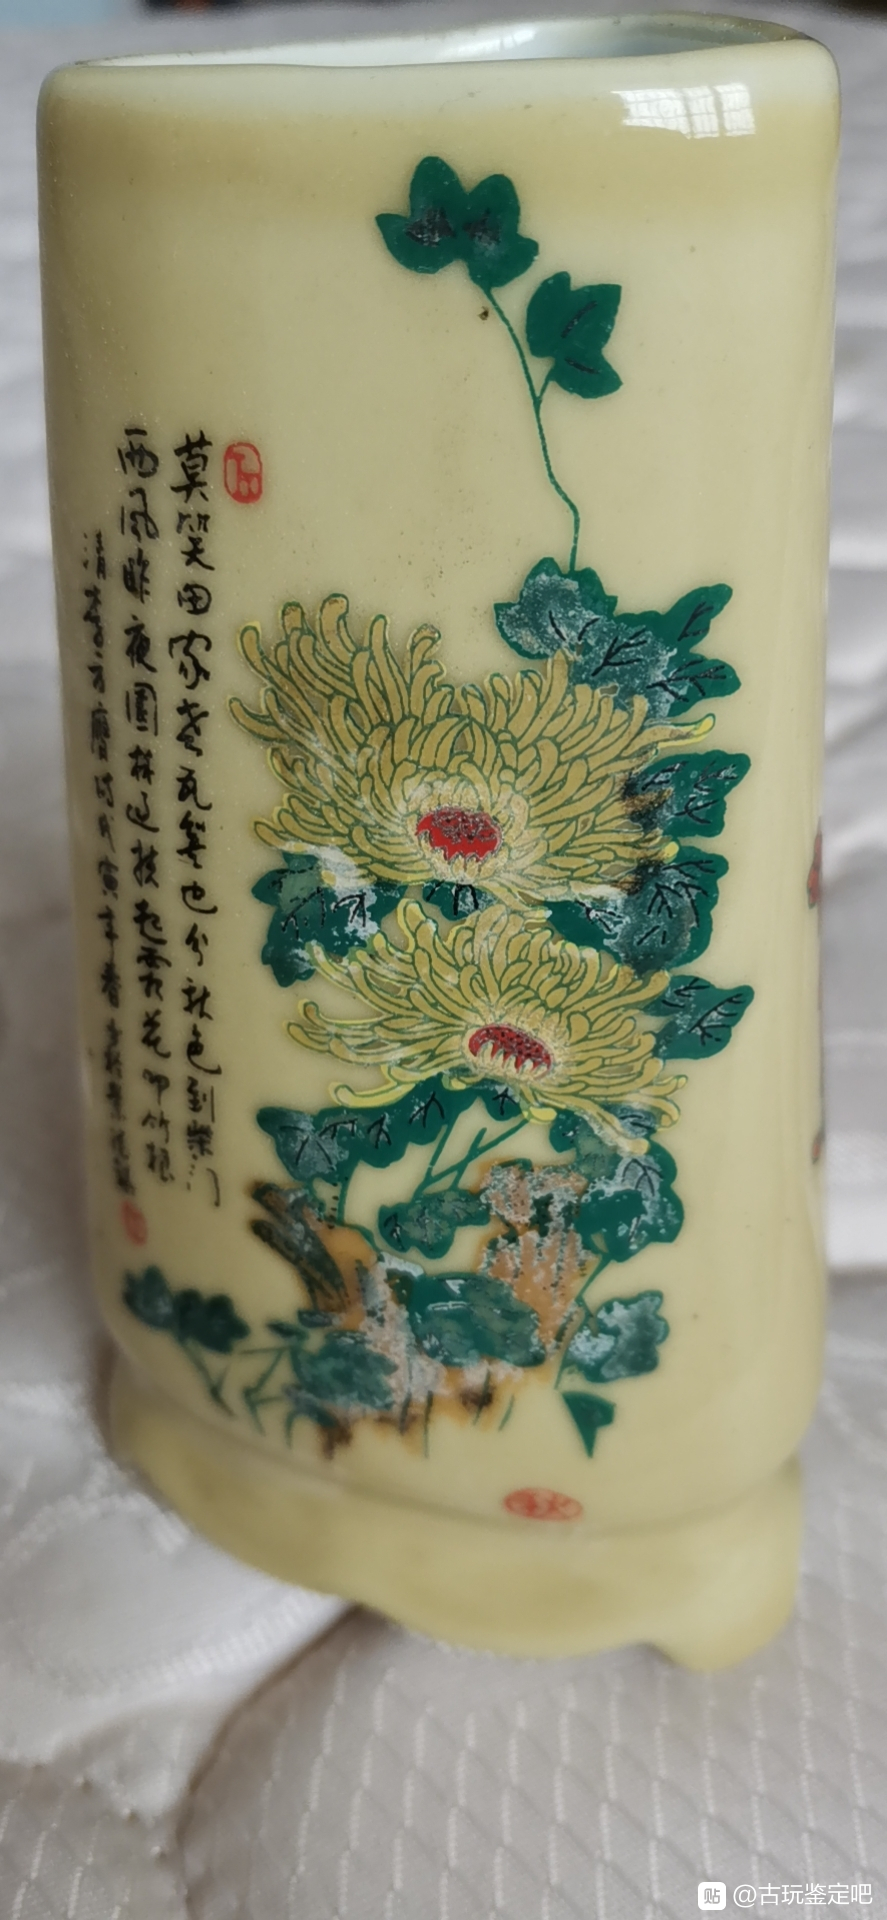 莫笑田家老瓦盆也分秋色到柴门
西风昨夜園林过扶起霜花叩竹根
清李方膺诗戊寅年春
贴 @古玩鉴定吧